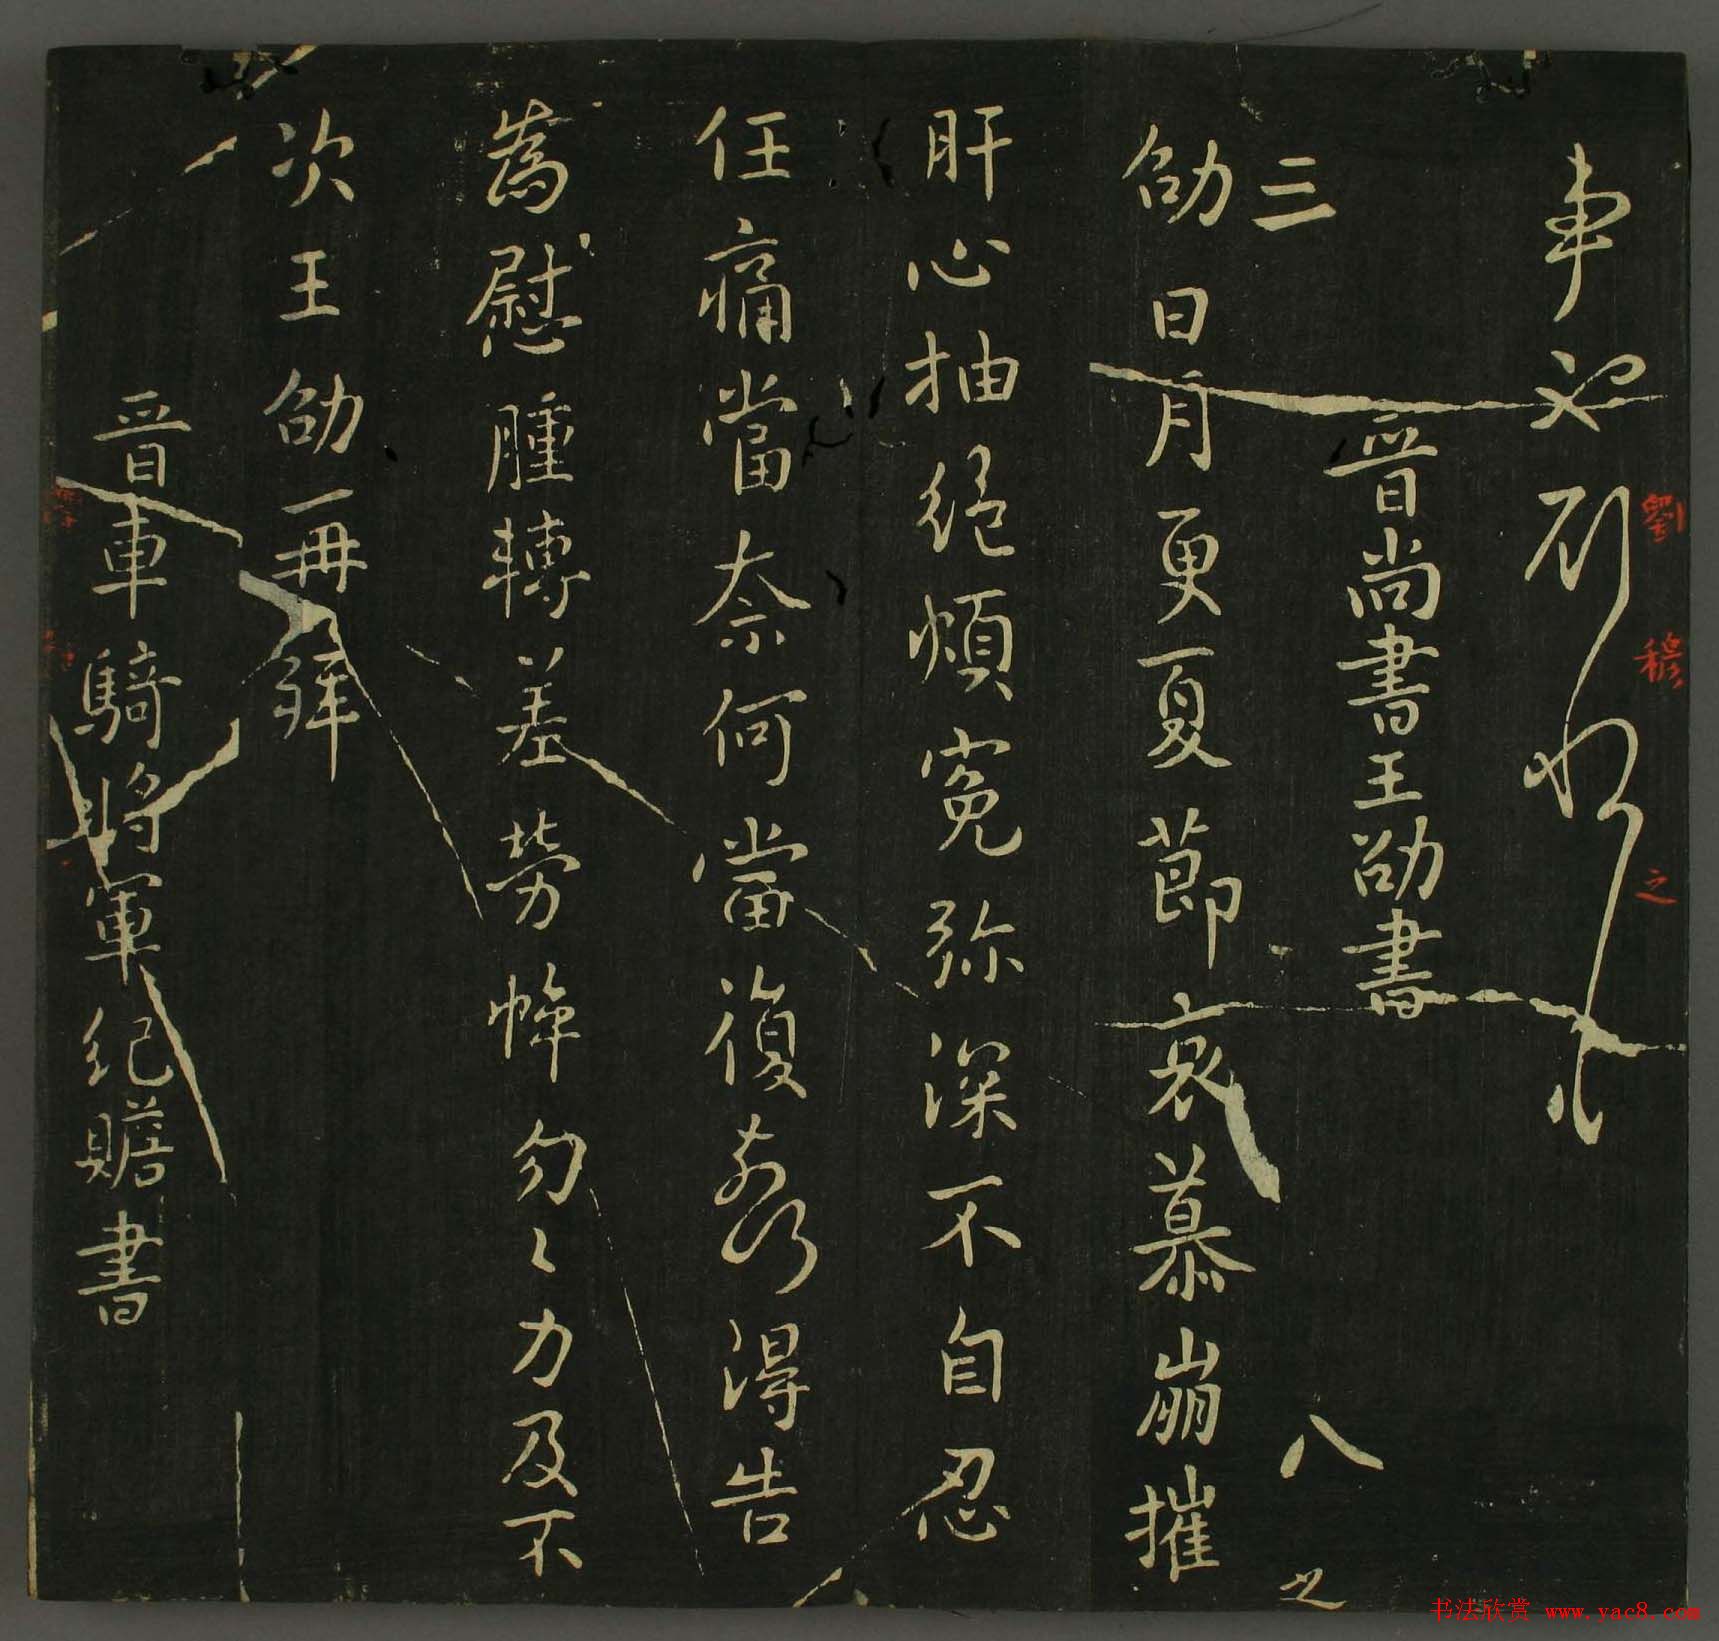 晉尚書王劭書
三
八
劭白明更夏節哀慕崩摧
肝心抽絕煩冤弥深不自忍
任痛當奈何何當復敘得告
為慰腫轉差勞悴勿〻力及不
次王劭再拜
晉車騎將軍紀瞻書
劉
穆
之
书法欣赏 www.yac8.com